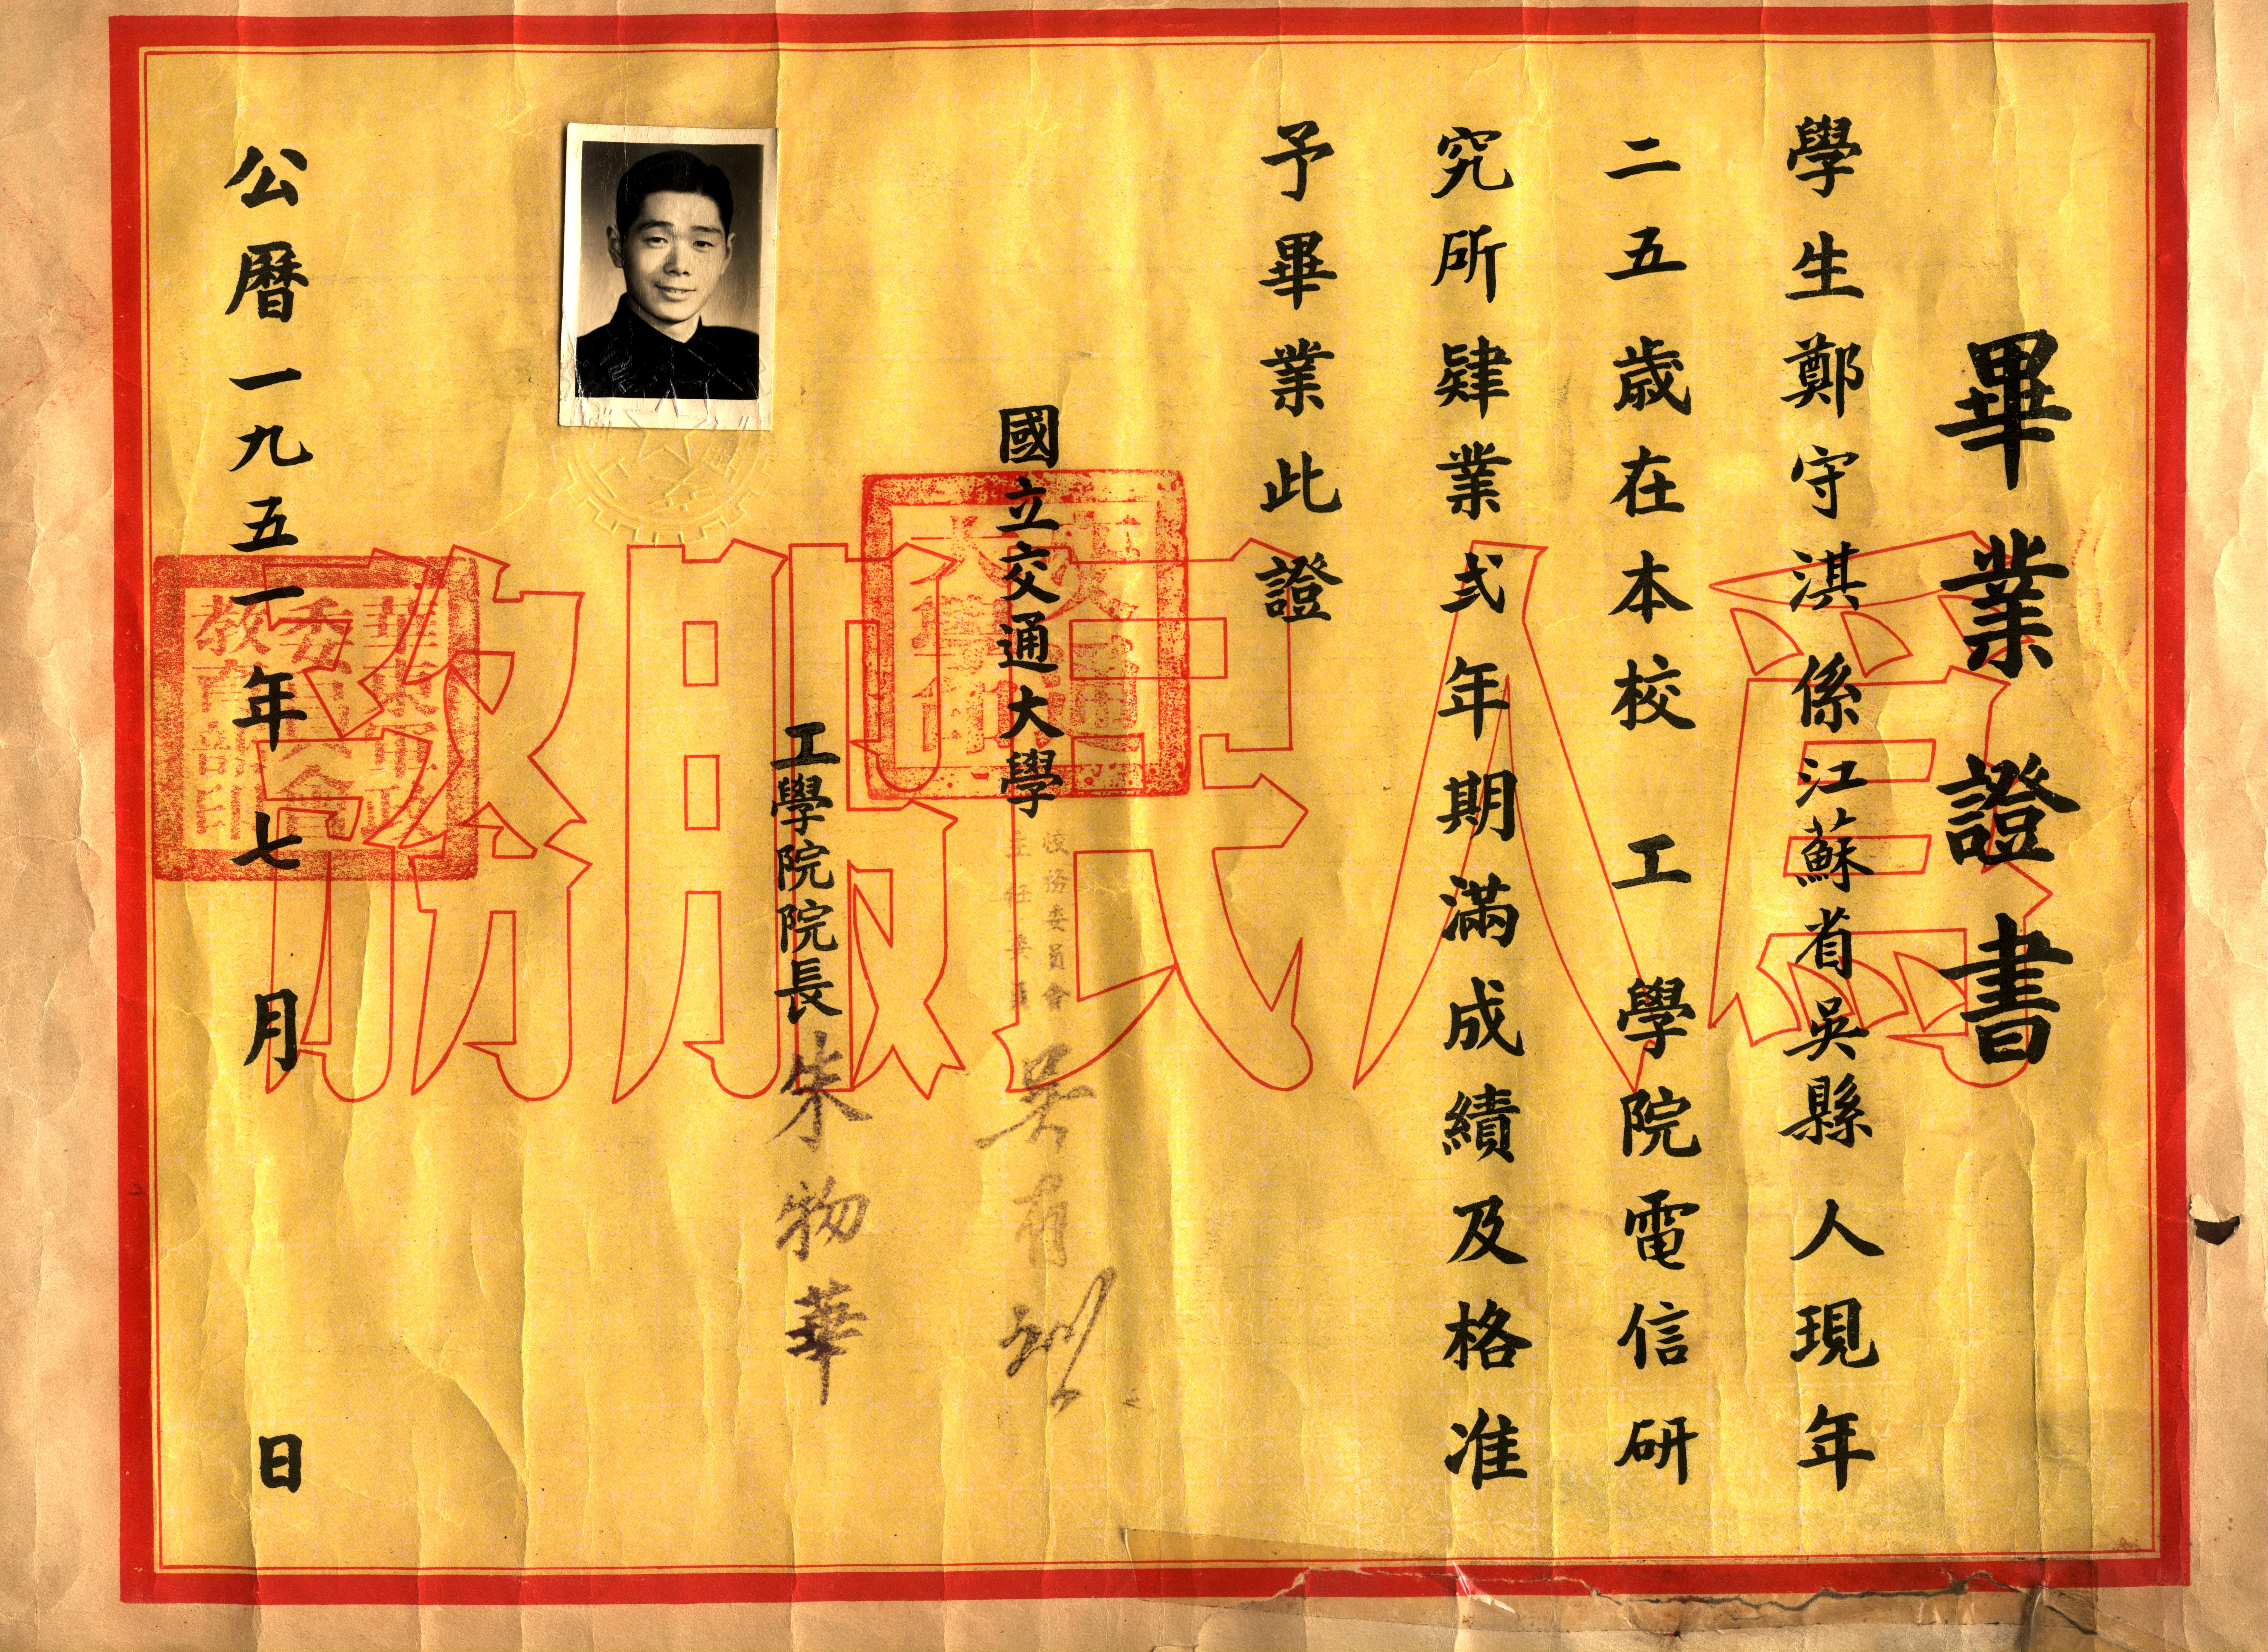 畢業證書
學生鄭守淇係江蘇省吳縣人現年
二五歲在本校工學院電信研
究所肄業弍年期滿成績及格准
予畢業此證
國立交通大學
校務委員會
主任委員
吳有訓
工學院院長朱物華
公曆一九五一年七月 日
為人民服務
交通大學印
華東軍政
委員會
教育部印